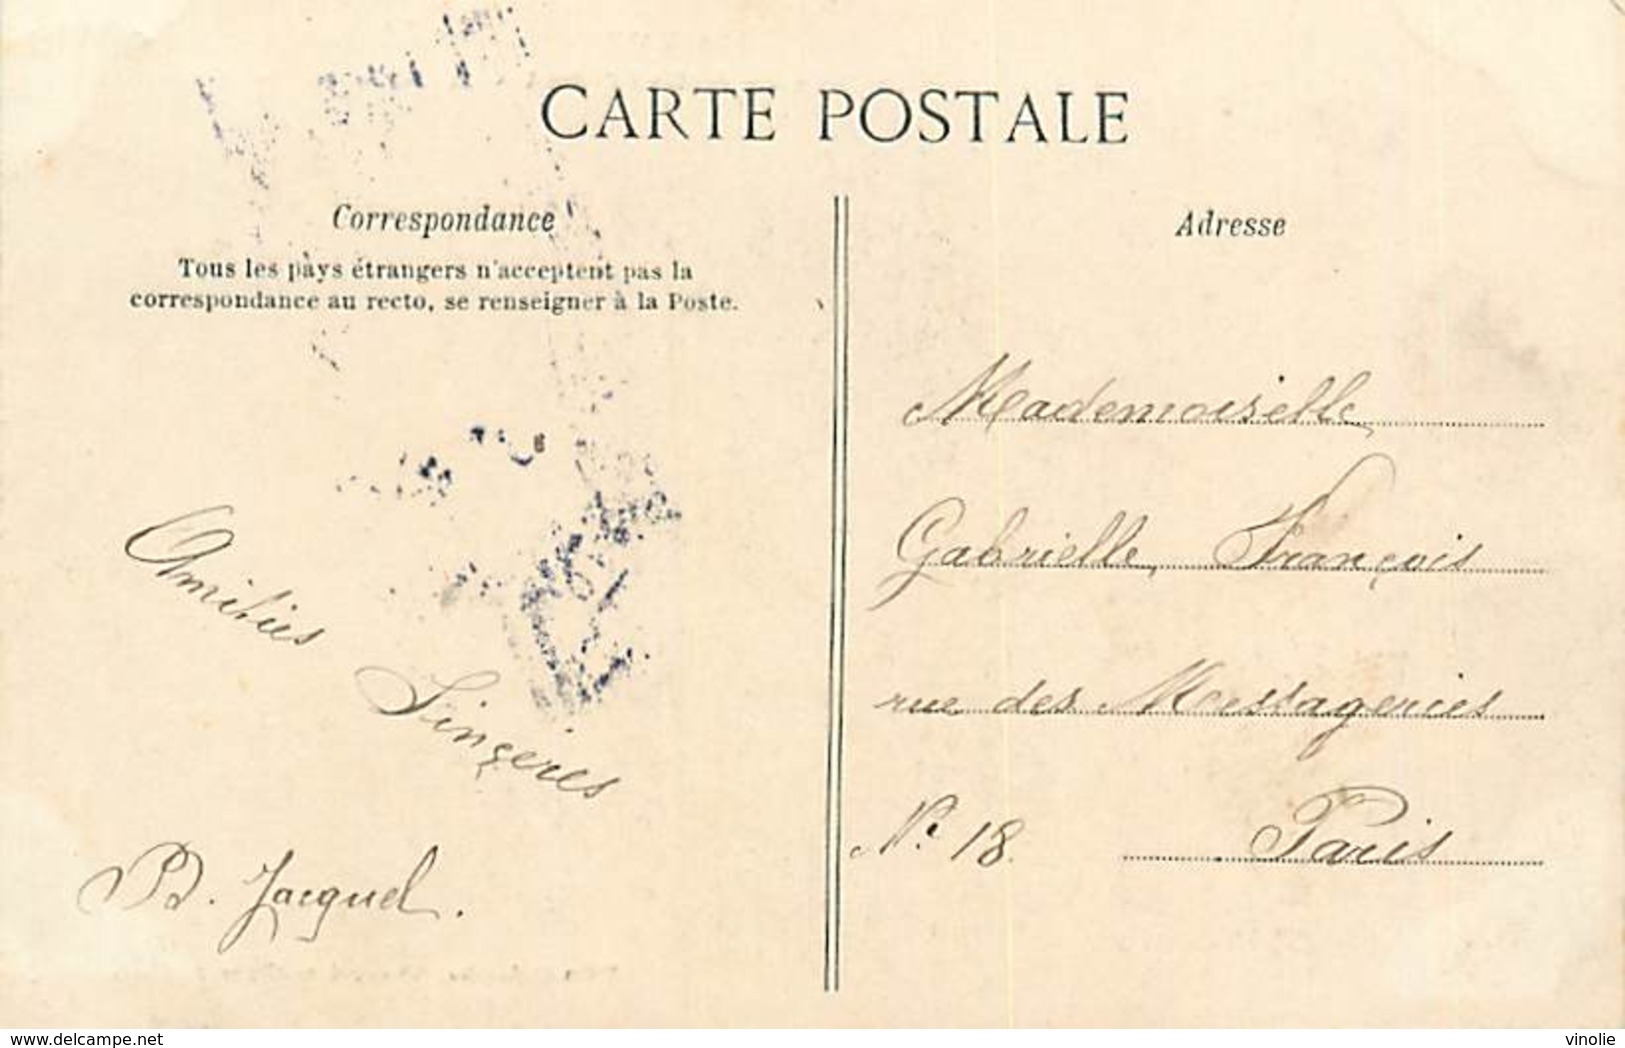 CARTE POSTALE
Correspondance
Tous les pays étrangers n'acceptent pas la
correspondance au recto, se renseigner à la Poste.
Amitiés
Sinçeres
B. Jacquel.
Adresse
Mademoiselle
Gabrielle, François
rue des Messageries
N° 18. Paris
www.delcampe.net
vinolie